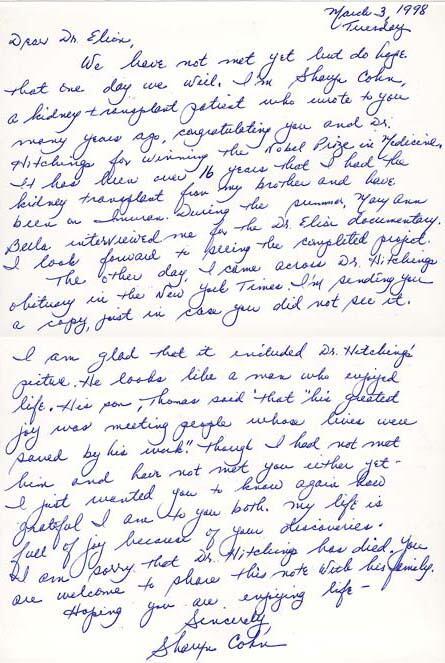 March 3, 1998
Tuesday
Dear Dr. Elion,
We have not met yet, but do hope
that one day we will. I'm Sharyn Cohn,
a kidney transplant patient who wrote to you
many years ago, congratulating you and Dr.
Hitchings for winning the Nobel Prize in Medicine.
It has been over 16 years that I had the
kidney transplant from my brother and have
been on Imuran. During the summer, Mary Ann
Bella interviewed me for the Dr. Elion documentary.
I look forward to seeing the completed project.
The other day, I came across Dr. Hitchings
obituary in the New York Times. I'm sending you
a copy, just in case you did not see it.
I am glad that it included Dr. Hitching's
picture. He looks like a man who enjoyed
life. His son, Thomas said "that "his greatest
joy was meeting people whose lives were
saved by his work". Though I had not met
him and have not met you either yet -
I just wanted you to know again how
grateful I am to you both. My life is
full of joy because of your discoveries.
I am sorry that Dr. Hitchings has died. You
are welcome to share this note with his family.
Hoping you are enjoying life -
Sincerely,
Sharyn Cohn